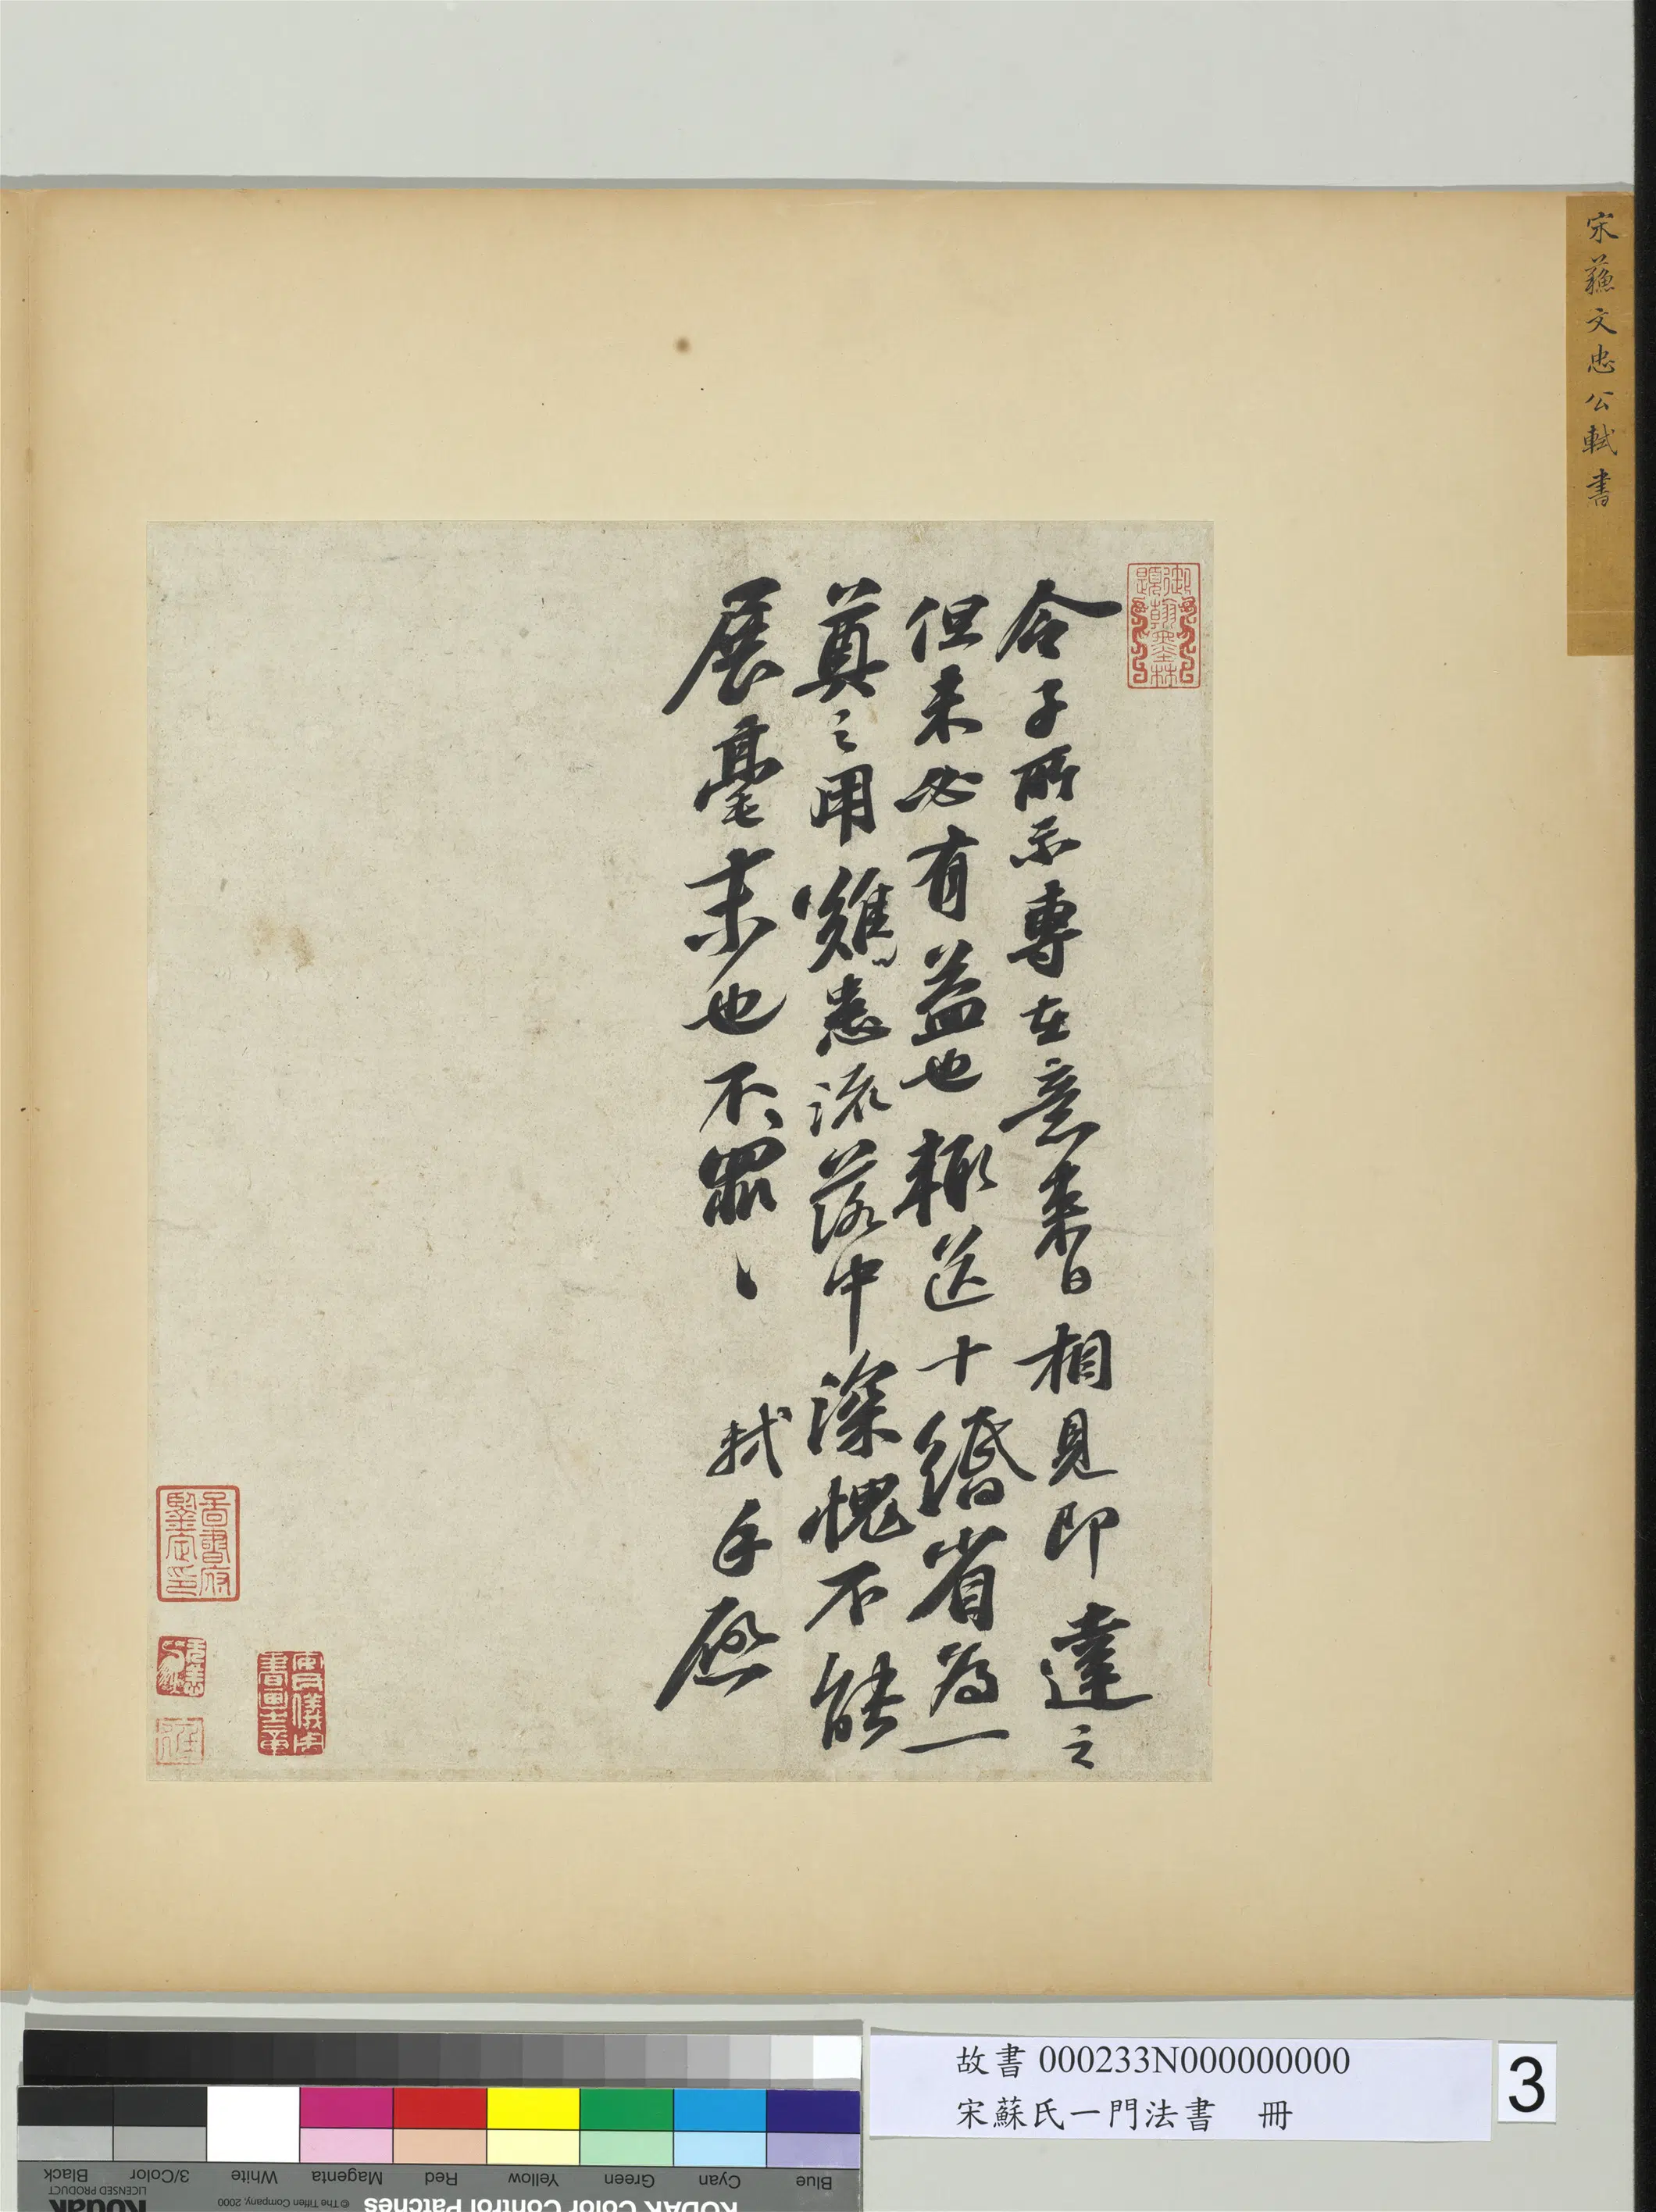 宋蘇文忠公軾書
令子所示專在意來日相見即達之
但未必有益也輒送十縑省為一
奠之用難患流落中深愧不能
展毫末也不罪〻 軾手啟
御題翰墨林
故書 000233N000000000
宋蘇氏一門法書 冊
3
Blue Cyan Green Yellow Red Magenta White 3/Color Black
KODAK Color Control Patches © The Tiffen Company, 2000 Kodak LICENSED PRODUCT